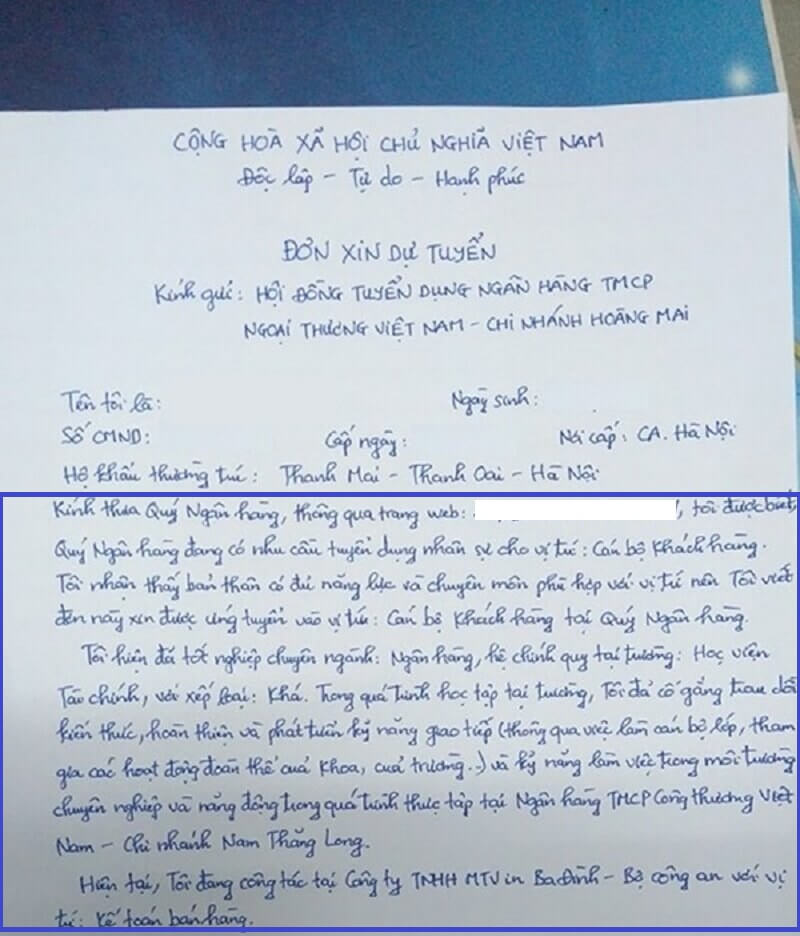 CỘNG HOÀ XÃ HỘI CHỦ NGHĨA VIỆT NAM
Độc lập - Tự do - Hạnh phúc
ĐƠN XIN DỰ TUYỂN
Kính gửi: HỘI ĐỒNG TUYỂN DỤNG NGÂN HÀNG TMCP
NGOẠI THƯƠNG VIỆT NAM - CHI NHÁNH HOÀNG MAI
Tên tôi là: Ngày sinh:
Số CMND: Cấp ngày: Nơi cấp: CA. Hà Nội
Hộ khẩu thường trú: Thanh Mai - Thanh Oai - Hà Nội
Kính thưa Quý Ngân hàng, thông qua trang web: , tôi được biết,
Quý Ngân hàng đang có nhu cầu tuyển dụng nhân sự cho vị trí: Cán bộ Khách hàng.
Tôi nhận thấy bản thân có đủ năng lực và chuyên môn phù hợp với vị trí nên Tôi viết
đơn này xin được ứng tuyển vào vị trí: Cán bộ Khách hàng tại Quý Ngân hàng.
Tôi hiện đã tốt nghiệp chuyên ngành: Ngân hàng, hệ chính quy tại trường: Học viện
Tài chính, với xếp loại: Khá. Trong quá trình học tập tại trường, Tôi đã cố gắng trau dồi
kiến thức, hoàn thiện và phát triển kỹ năng giao tiếp (thông qua việc làm cán bộ lớp, tham
gia các hoạt động đoàn thể của Khoa, của trường..) và kỹ năng làm việc trong môi trường
chuyên nghiệp và năng động trong quá trình thực tập tại Ngân hàng TMCP Công thương Việt
Nam - Chi nhánh Nam Thăng Long.
Hiện tại, Tôi đang công tác tại Công ty TNHH MTV in Ba Đình - Bộ công an với vị
trí: Kế toán bán hàng.